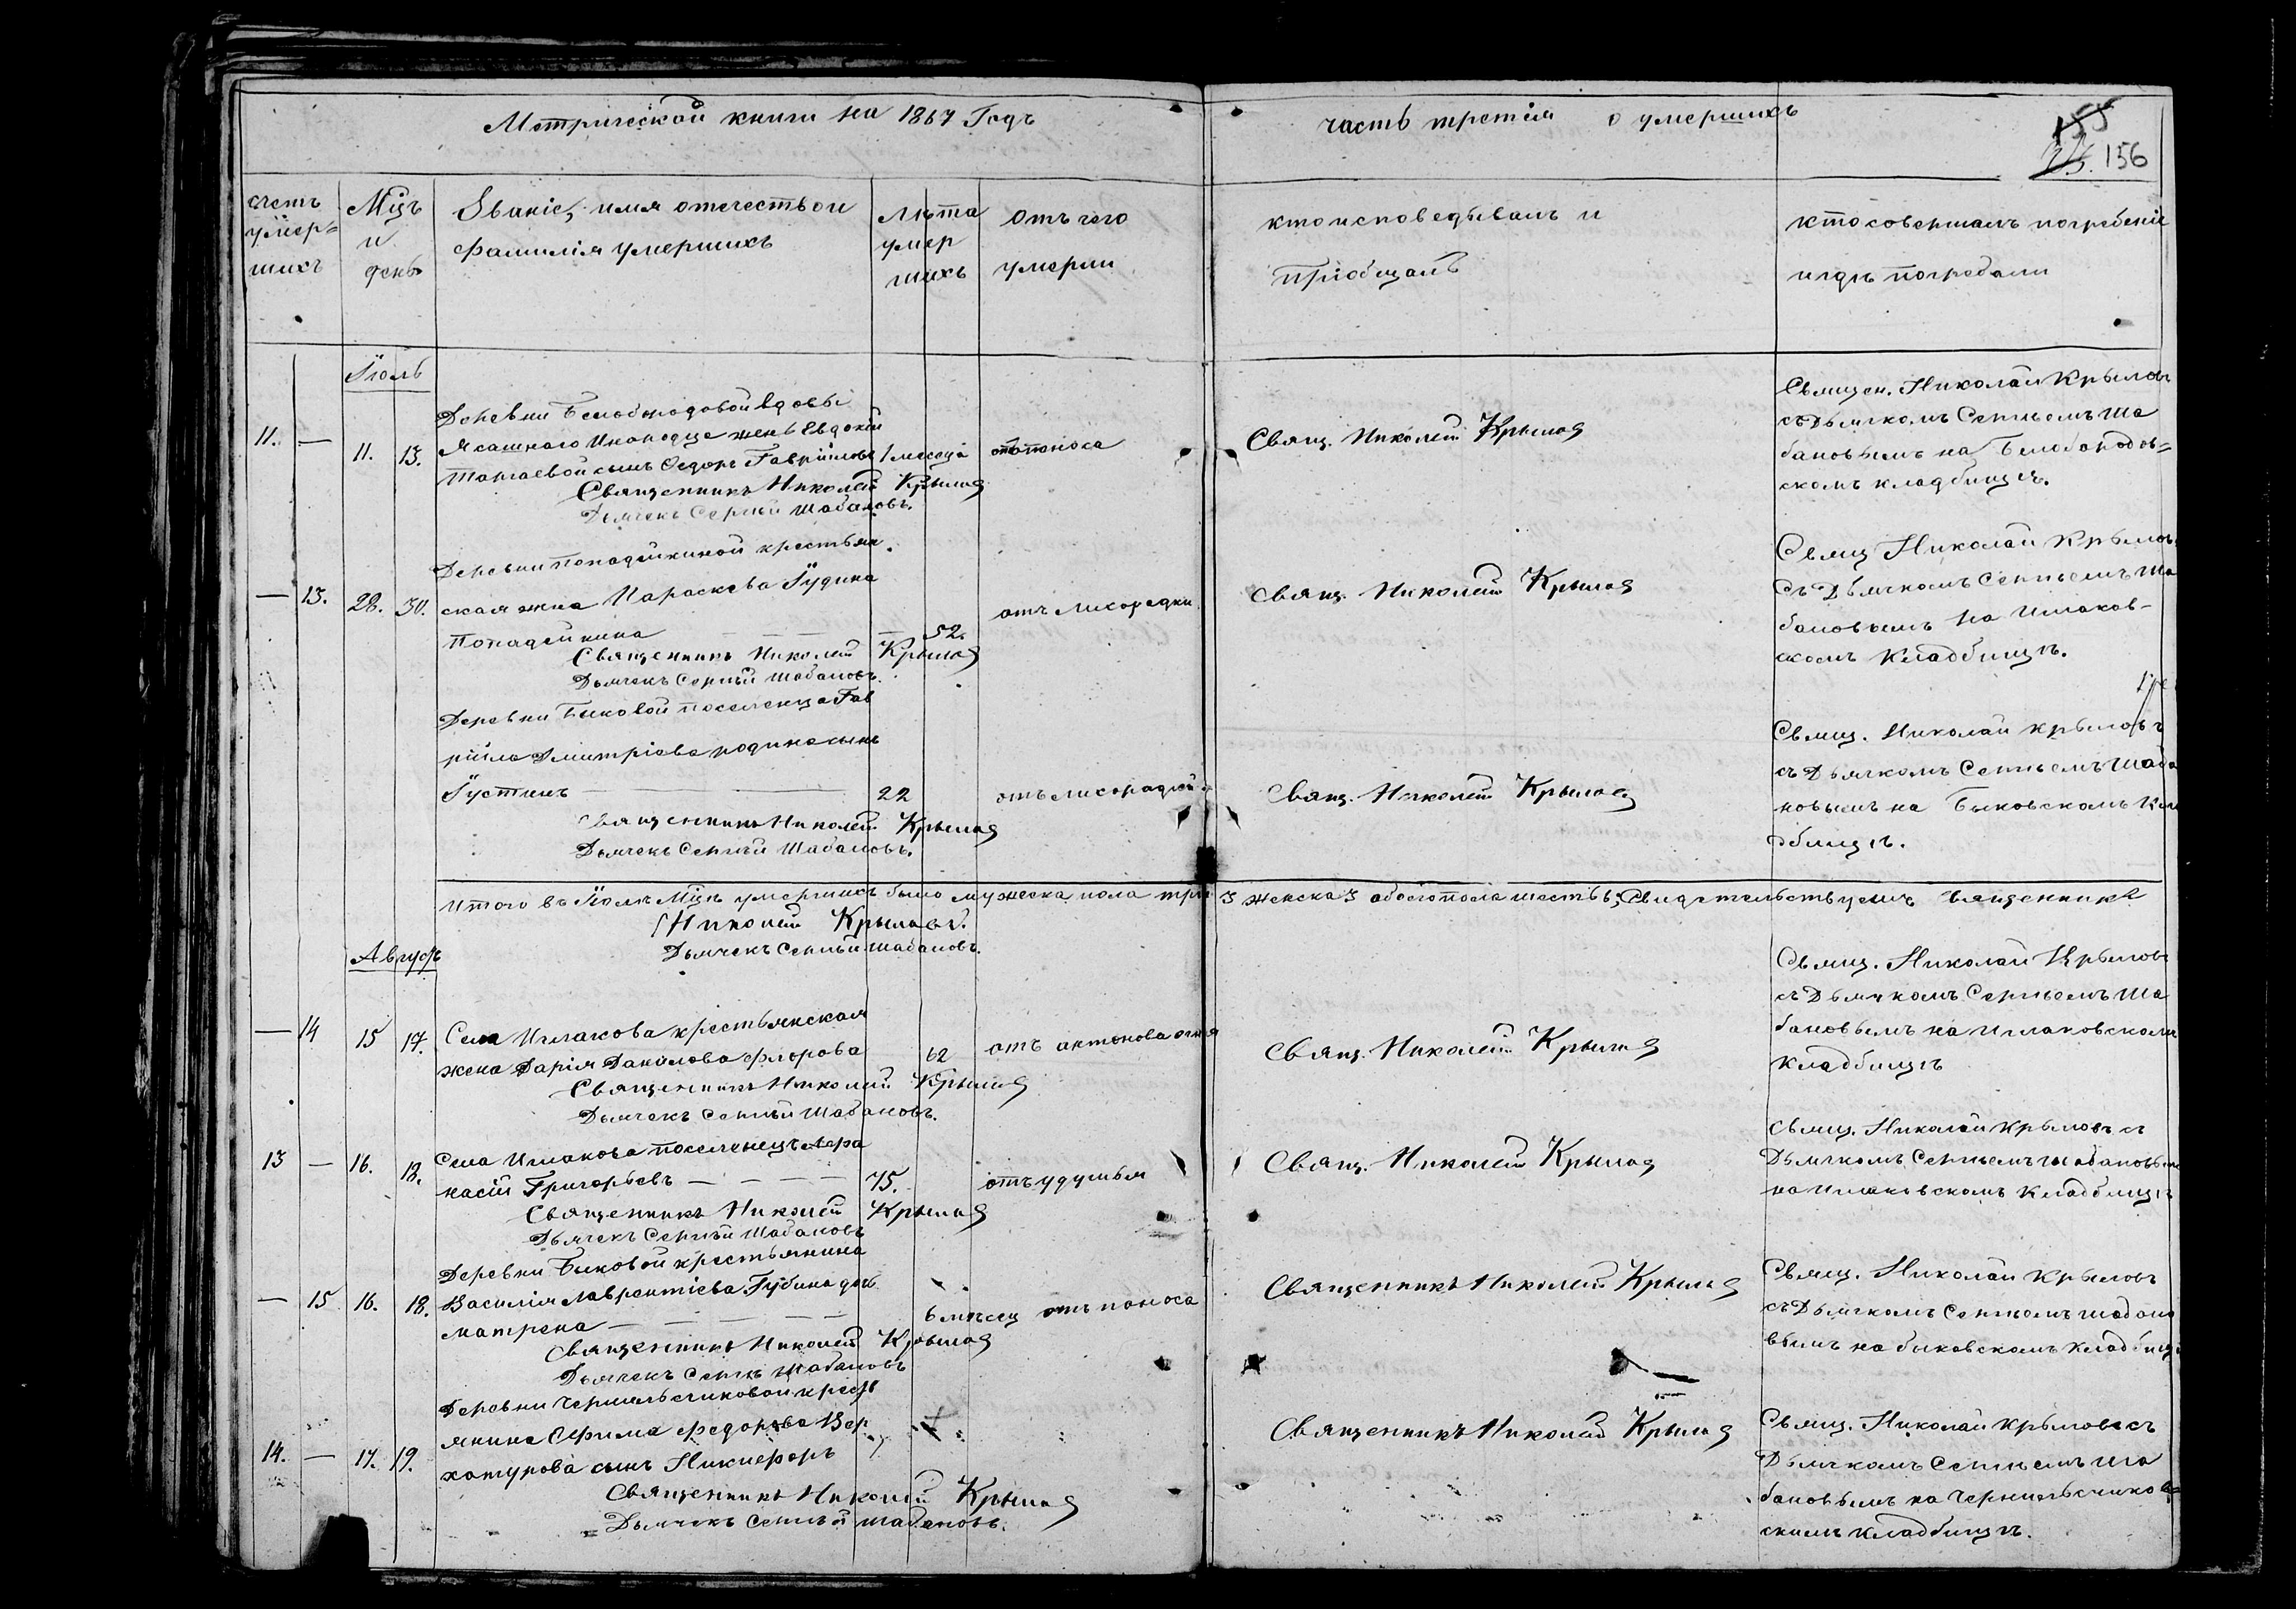 Метрической книги на 1867 Годъ
часть третія о умершихъ
155
156
счетъ умер=
шихъ
Мцъ
и
день
Званіе, имя отечество и
фамилія умершихъ
Лѣта
умер
шихъ
Отъ чего
умерли
кто исповедывалъ и
пріобщалъ
кто совершалъ погребеніе
и гдѣ погребали
Іюль
11. — 11. 13.
Деревни Белобородовой вдовы
Ясашнаго Инородца жены Евдокіи
сынъ Федоръ Гавриловъ 1 месеца отъ поноса
Священникъ Николай Крыловъ
Дьячекъ Сергѣй Шабановъ.
Свящ. Николай Крыловъ
Священ. Николай Крыловъ
съ Дьячкомъ Сергѣемъ Ша
бановымъ на Белобородов=
скомъ кладбищѣ.
— 13. 28. 30.
Деревни Попадейкиной крестьян
ская жена Параскева Іудина
Попадейкина — — — 52. отъ лихорадки
Священникъ Николай Крыловъ
Дьячекъ Сергѣй Шабановъ.
Свящ. Николай Крыловъ
Свящ Николай Крыловъ
съ Дьячкомъ Сергѣемъ Ша
бановымъ на Ишаков-
скомъ Кладбищѣ.
Деревни Быковой поселенца Гав
рійла Дмитріева Родина сынъ
Іустинъ — 22 отъ лихорадки
Священникъ Николай Крыловъ
Дьячекъ Сергѣй Шабановъ.
Свящ. Николай Крыловъ
Свящ. Николай Крыловъ
съ Дьячкомъ Сергѣемъ Шаба
новымъ на Быковскомъ Кла
дбищѣ.
Итого въ Іюлѣ Мцѣ умершихъ было мужеска пола три 3 женска 3 обоего пола шесть 6; Свидетельствуемъ Священникъ
Николай Крыловъ.
Дьячекъ Сергѣй Шабановъ.
Августъ
— 14 15 17.
Села Ишакова крестьянская
жена Дарія Данилова Флорова 62 отъ антонова огня
Священникъ Николай Крыловъ
Дьячекъ Сергѣй Шабановъ.
Свящ. Николай Крыловъ
Свящ. Николай Крыловъ
съ Дьячкомъ Сергѣемъ Ша
бановымъ на Ишаковскомъ
Кладбищѣ
13 — 16. 18.
Села Ишакова поселенецъ Афа
насій Григорьевъ — — — — 75. отъ удушья
Священникъ Николай Крыловъ
Дьячекъ Сергѣй Шабановъ
Свящ. Николай Крыловъ
Свящ. Николай Крыловъ съ
Дьячкомъ Сергѣемъ Шабановымъ
на Ишаковскомъ Кладбищѣ
— 15 16. 18.
Деревни Быковой крестьянина
Василія Лаврентіева Губина дочь
Матрена — — — — 6 мѣсец отъ поноса
Священникъ Николай Крыловъ
Дьячекъ Сергѣй Шабановъ
Священникъ Николай Крыловъ
Свящ. Николай Крыловъ
съ Дьячкомъ Сергѣемъ Шабано
вымъ на быковскомъ кладбищѣ
14. — 17. 19.
янина Ефима Федорова Вер
хотурова сынъ Никифоръ
Священникъ Николай Крыловъ
Дьячекъ Сергѣй Шабановъ.
Священникъ Николай Крыловъ
Свящ. Николай Крыловъ съ
Дьячкомъ Сергѣемъ Ша
бановымъ на
скомъ кладбищѣ.